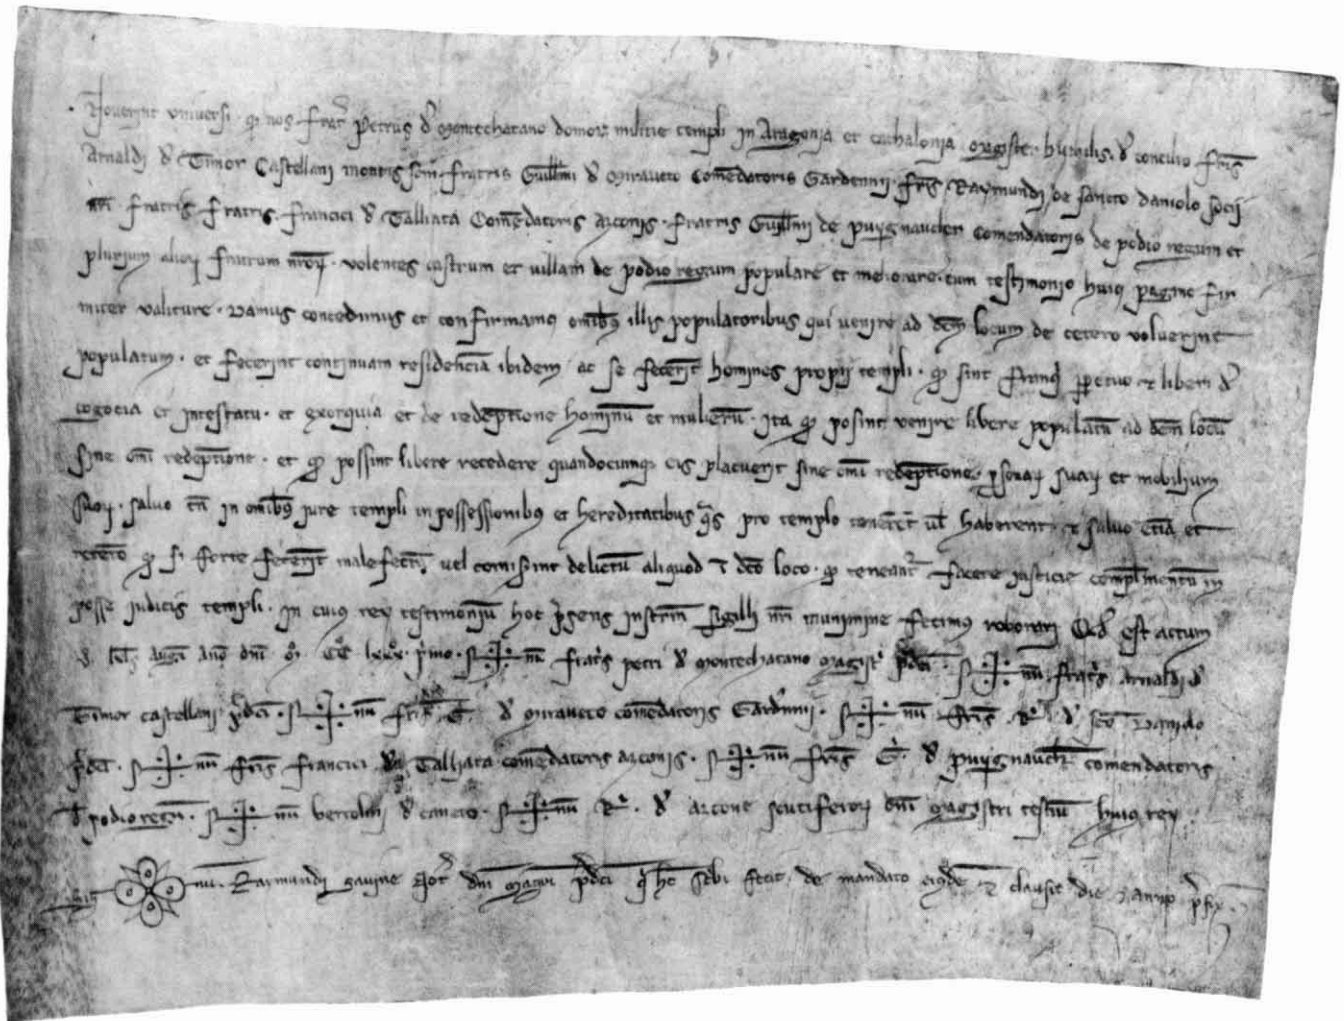 Noverint universi · qȝ nos fraťr Petrus đ Montechatano domorꝝ militie templi in Aragonia et cathalonia magister humilis · đ concilio fr̄is
Arnaldi đ Timor Castellani montis soni · fratris Guill̄mi đ Miraveto Com̄edatoris Gardennii · fr̄is Raymundi de sancto daniolo socii
nr̄i fratris · fratris francici đ Talliata Com̄edatoris azconis · fratris Guill̄mi de puyg naucler comendatoris de podio regum et
plurium aliorꝝ fratrum nr̄orꝝ · volentes castrum et villam de podio regum populare et meliorare · cum testimonio huiꝰ pagine fir
miter valiture · Damus concedimus et confirmamꝰ om̄ibꝰ illis populatoribus qui venire ad dc̄m locum de cetero voluerint
populatum · et fecerint continuam residencīa ibidem ac se fecer̄it homines proprii templi · qȝ sint franqi ꝑpetuo et liberi đ
cogocia et intestatu · et exorquia et de redēptione hominū et mulierū · Ita qȝ posint venire libere populatū ad dc̄m locū
sine om̄i redēptione · et qȝ possint libere recedere quandocumqȝ eis placuerit sine om̄i redēptione ꝑsonarꝝ suarꝝ et mobilium
suorꝝ · salvo tn̄ in om̄ibꝰ jure templi in possessionibꝰ et hereditatibus q̄s pro templo tener̄et ul̄ haberent · et salvo etīa et
retēto qȝ si forte fecer̄it malefc̄m vel comiserint delictū aliquod ī dc̄o loco · qȝ teneant̄ facere justicie complimentū in
posse judicis templi · In cuius rey testimoniū hoc p̄sens instrm̄ sigilli nr̄i munimine fecimꝰ roborari Qđ est actum
kl̄s augꝰti año dn̄i mº CCº lxxxº p̄mo · Sig+nū frat̄s petri đ Montechatano magist̄ p̄dc̄i · Sig+nū frat̄s Arnaldi đ
Timor castellani p̄dc̄i · Sig+nū fr̄is G. đ Miraveto com̄edatoris Gard̄nnii · Sig+nū fr̄is R̄ đ sc̄o Daniolo
p̄dc̄i · Sig+nū fr̄is francici đ Talliata com̄edatoris azconis · Sig+nū fr̄is G. đ puyg naucler comendatoris
đ podio regū · Sig+nū bertolini đ caneto · Sig+nū R̄ · đ azcone scutiferorꝝ dn̄i magistri testiū huiꝰ rey
Sig+nū · Raimundi gavine not̄ dn̄i magr̄i p̄dc̄i q̄ hc̄ sc̄bi fecit de mandato eiꝰdē et clausit die et anno p̄fix̄